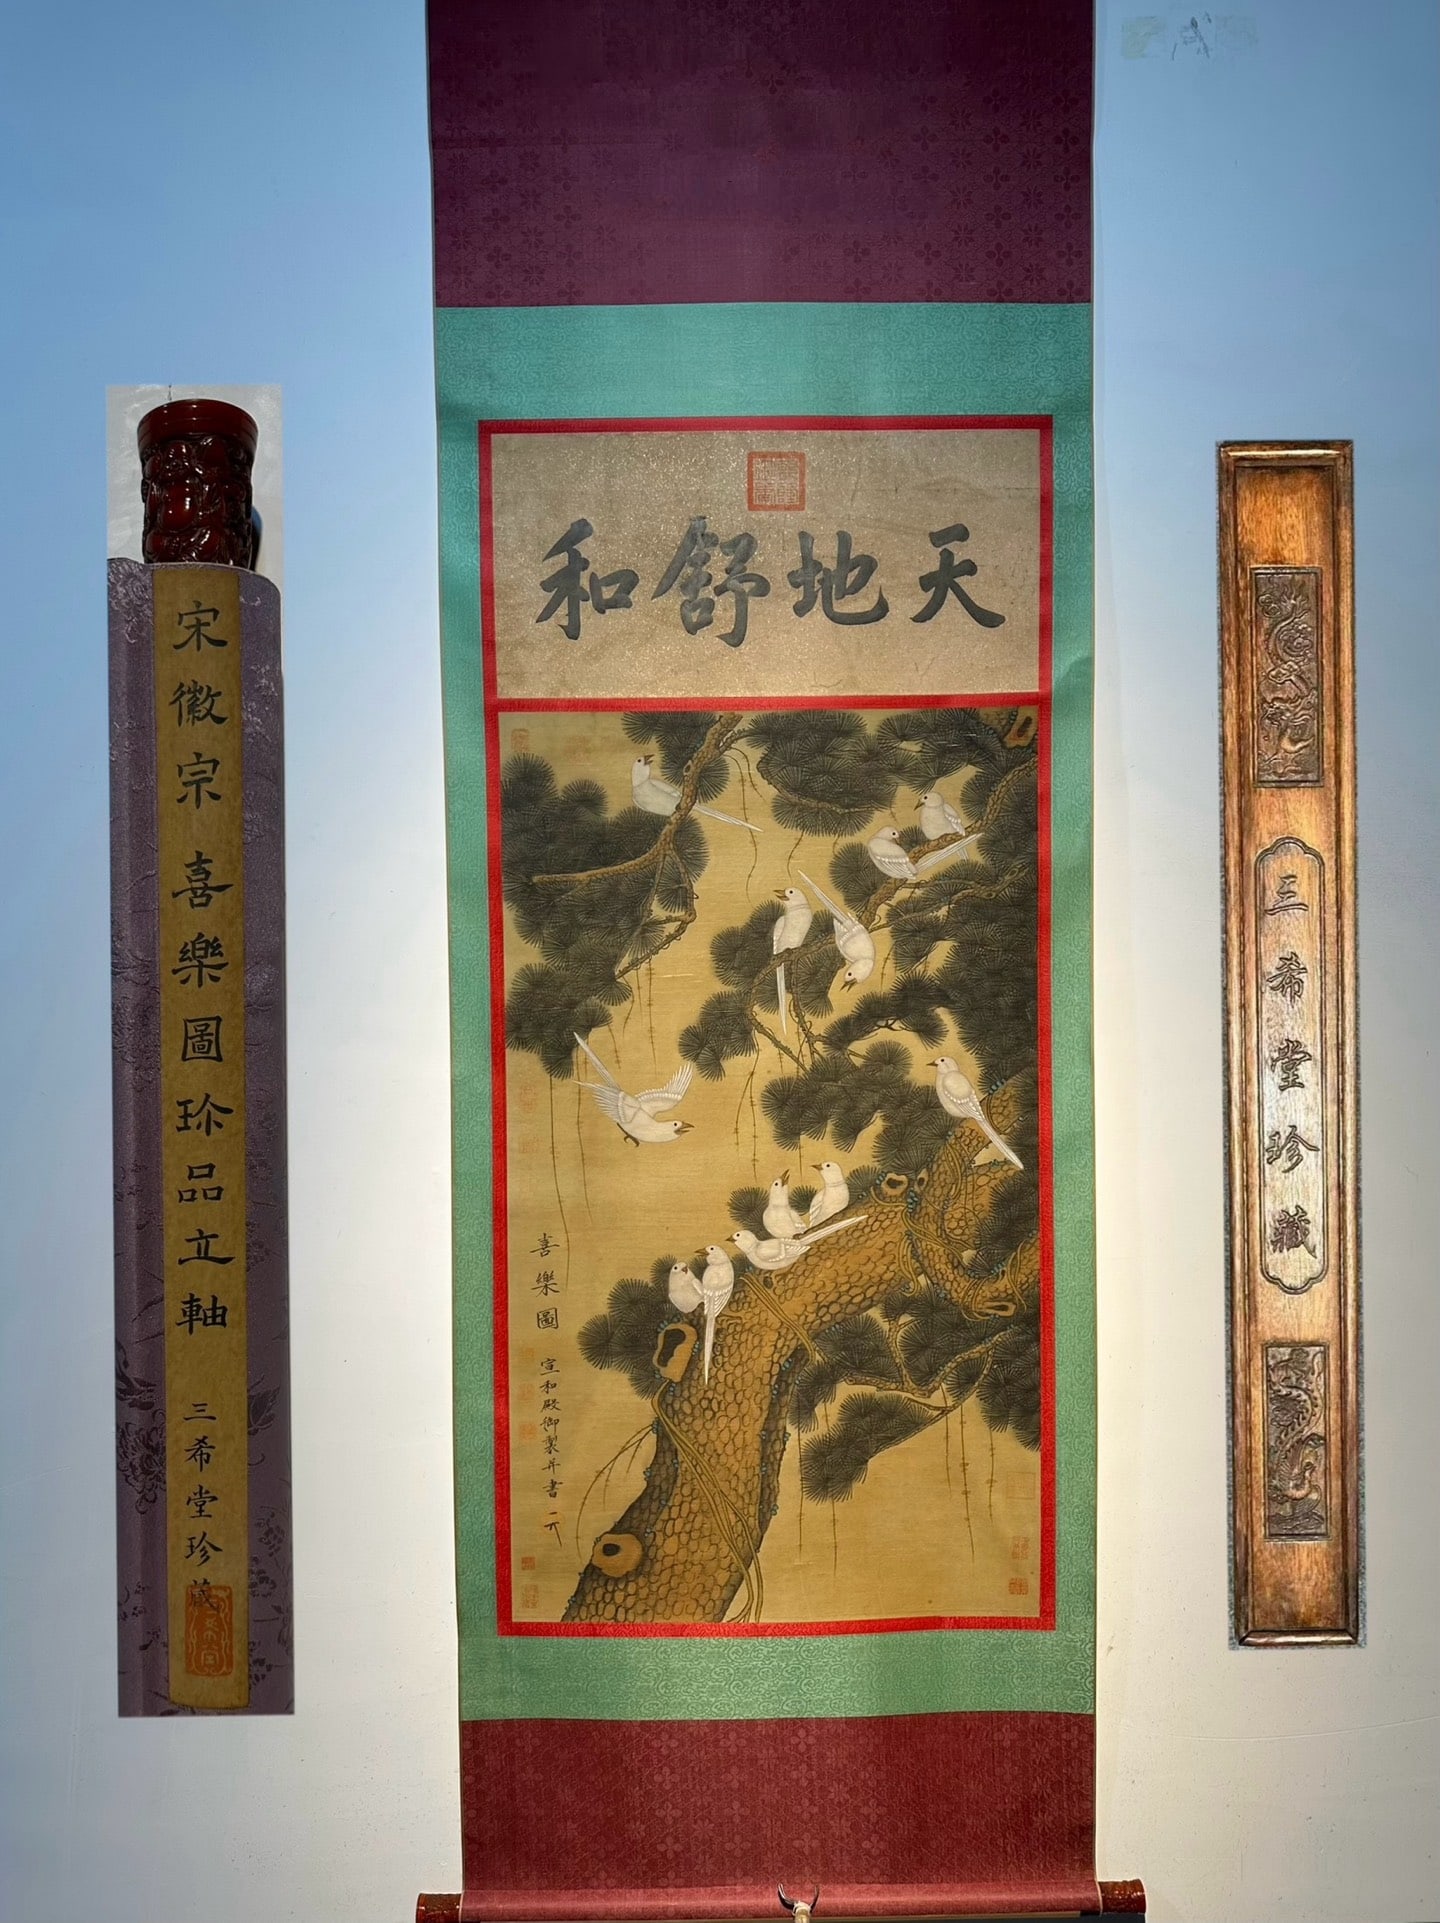 宋徽宗喜樂圖珎品立軸
三希堂珍藏
和舒地天
喜樂圖
宣和殿御製并書
三希堂珍藏